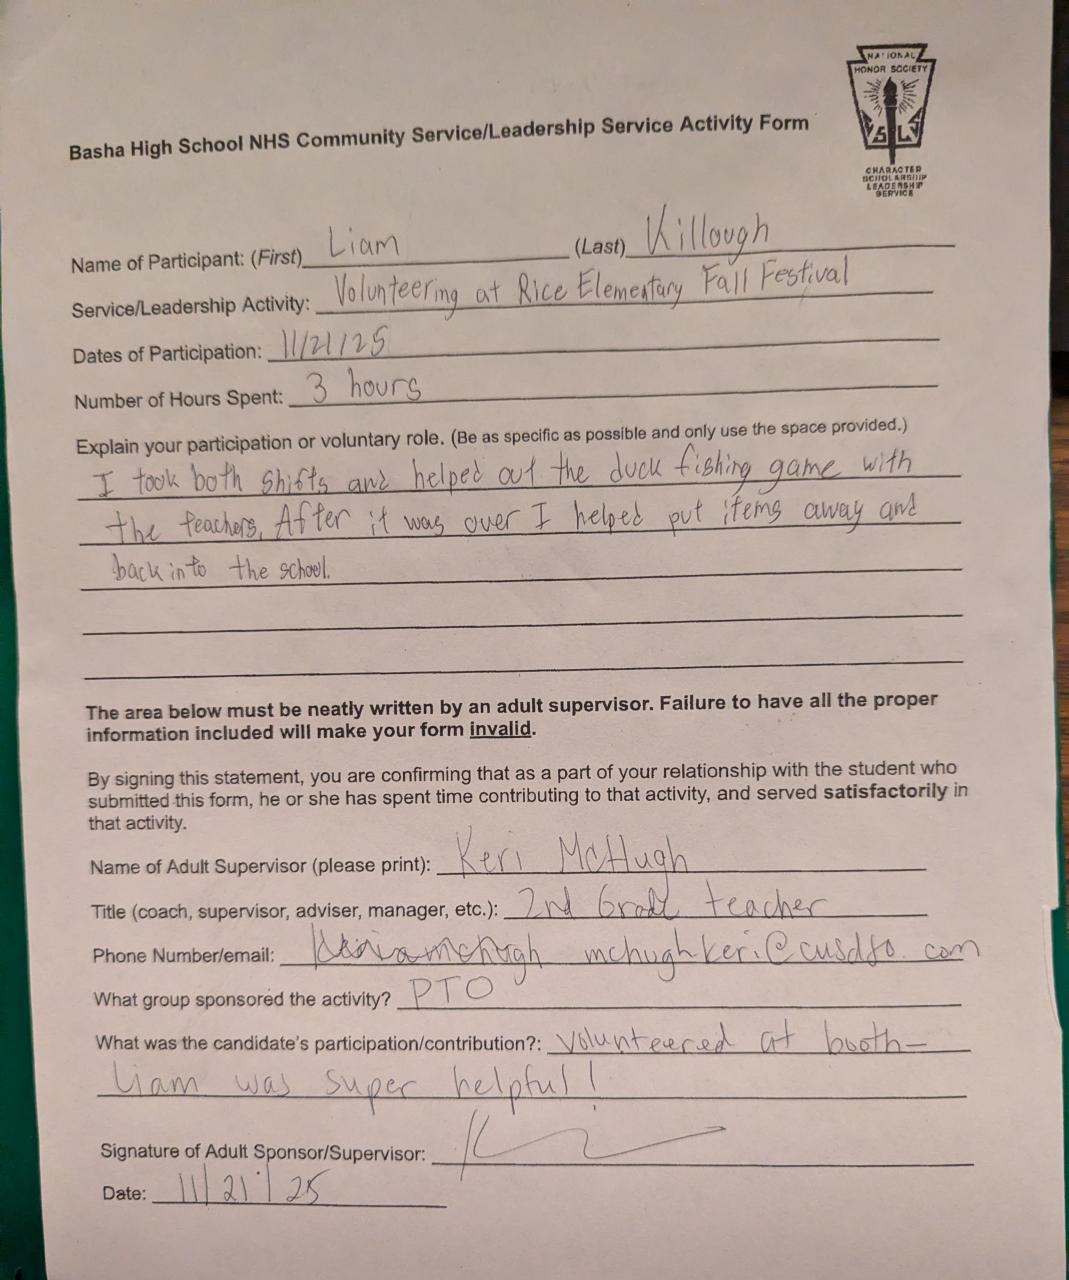 NATIONAL
HONOR SOCIETY
S L
CHARACTER
SCHOLARSHIP
LEADERSHIP
SERVICE
Basha High School NHS Community Service/Leadership Service Activity Form
Name of Participant: (First) Liam (Last) Killough
Service/Leadership Activity: Volunteering at Rice Elementary Fall Festival
Dates of Participation: 11/21/25
Number of Hours Spent: 3 hours
Explain your participation or voluntary role. (Be as specific as possible and only use the space provided.)
I took both shifts and helped out the duck fishing game with
the teachers. After it was over I helped put items away and
back into the school.
The area below must be neatly written by an adult supervisor. Failure to have all the proper
information included will make your form invalid.
By signing this statement, you are confirming that as a part of your relationship with the student who
submitted this form, he or she has spent time contributing to that activity, and served satisfactorily in
that activity.
Name of Adult Supervisor (please print): Keri McHugh
Title (coach, supervisor, adviser, manager, etc.): 2nd Grade teacher
Phone Number/email: mchughkeri@cusd80.com
What group sponsored the activity? PTO
What was the candidate's participation/contribution?: Volunteered at booth-
Liam was super helpful!
Signature of Adult Sponsor/Supervisor:
Date: 11/21/25